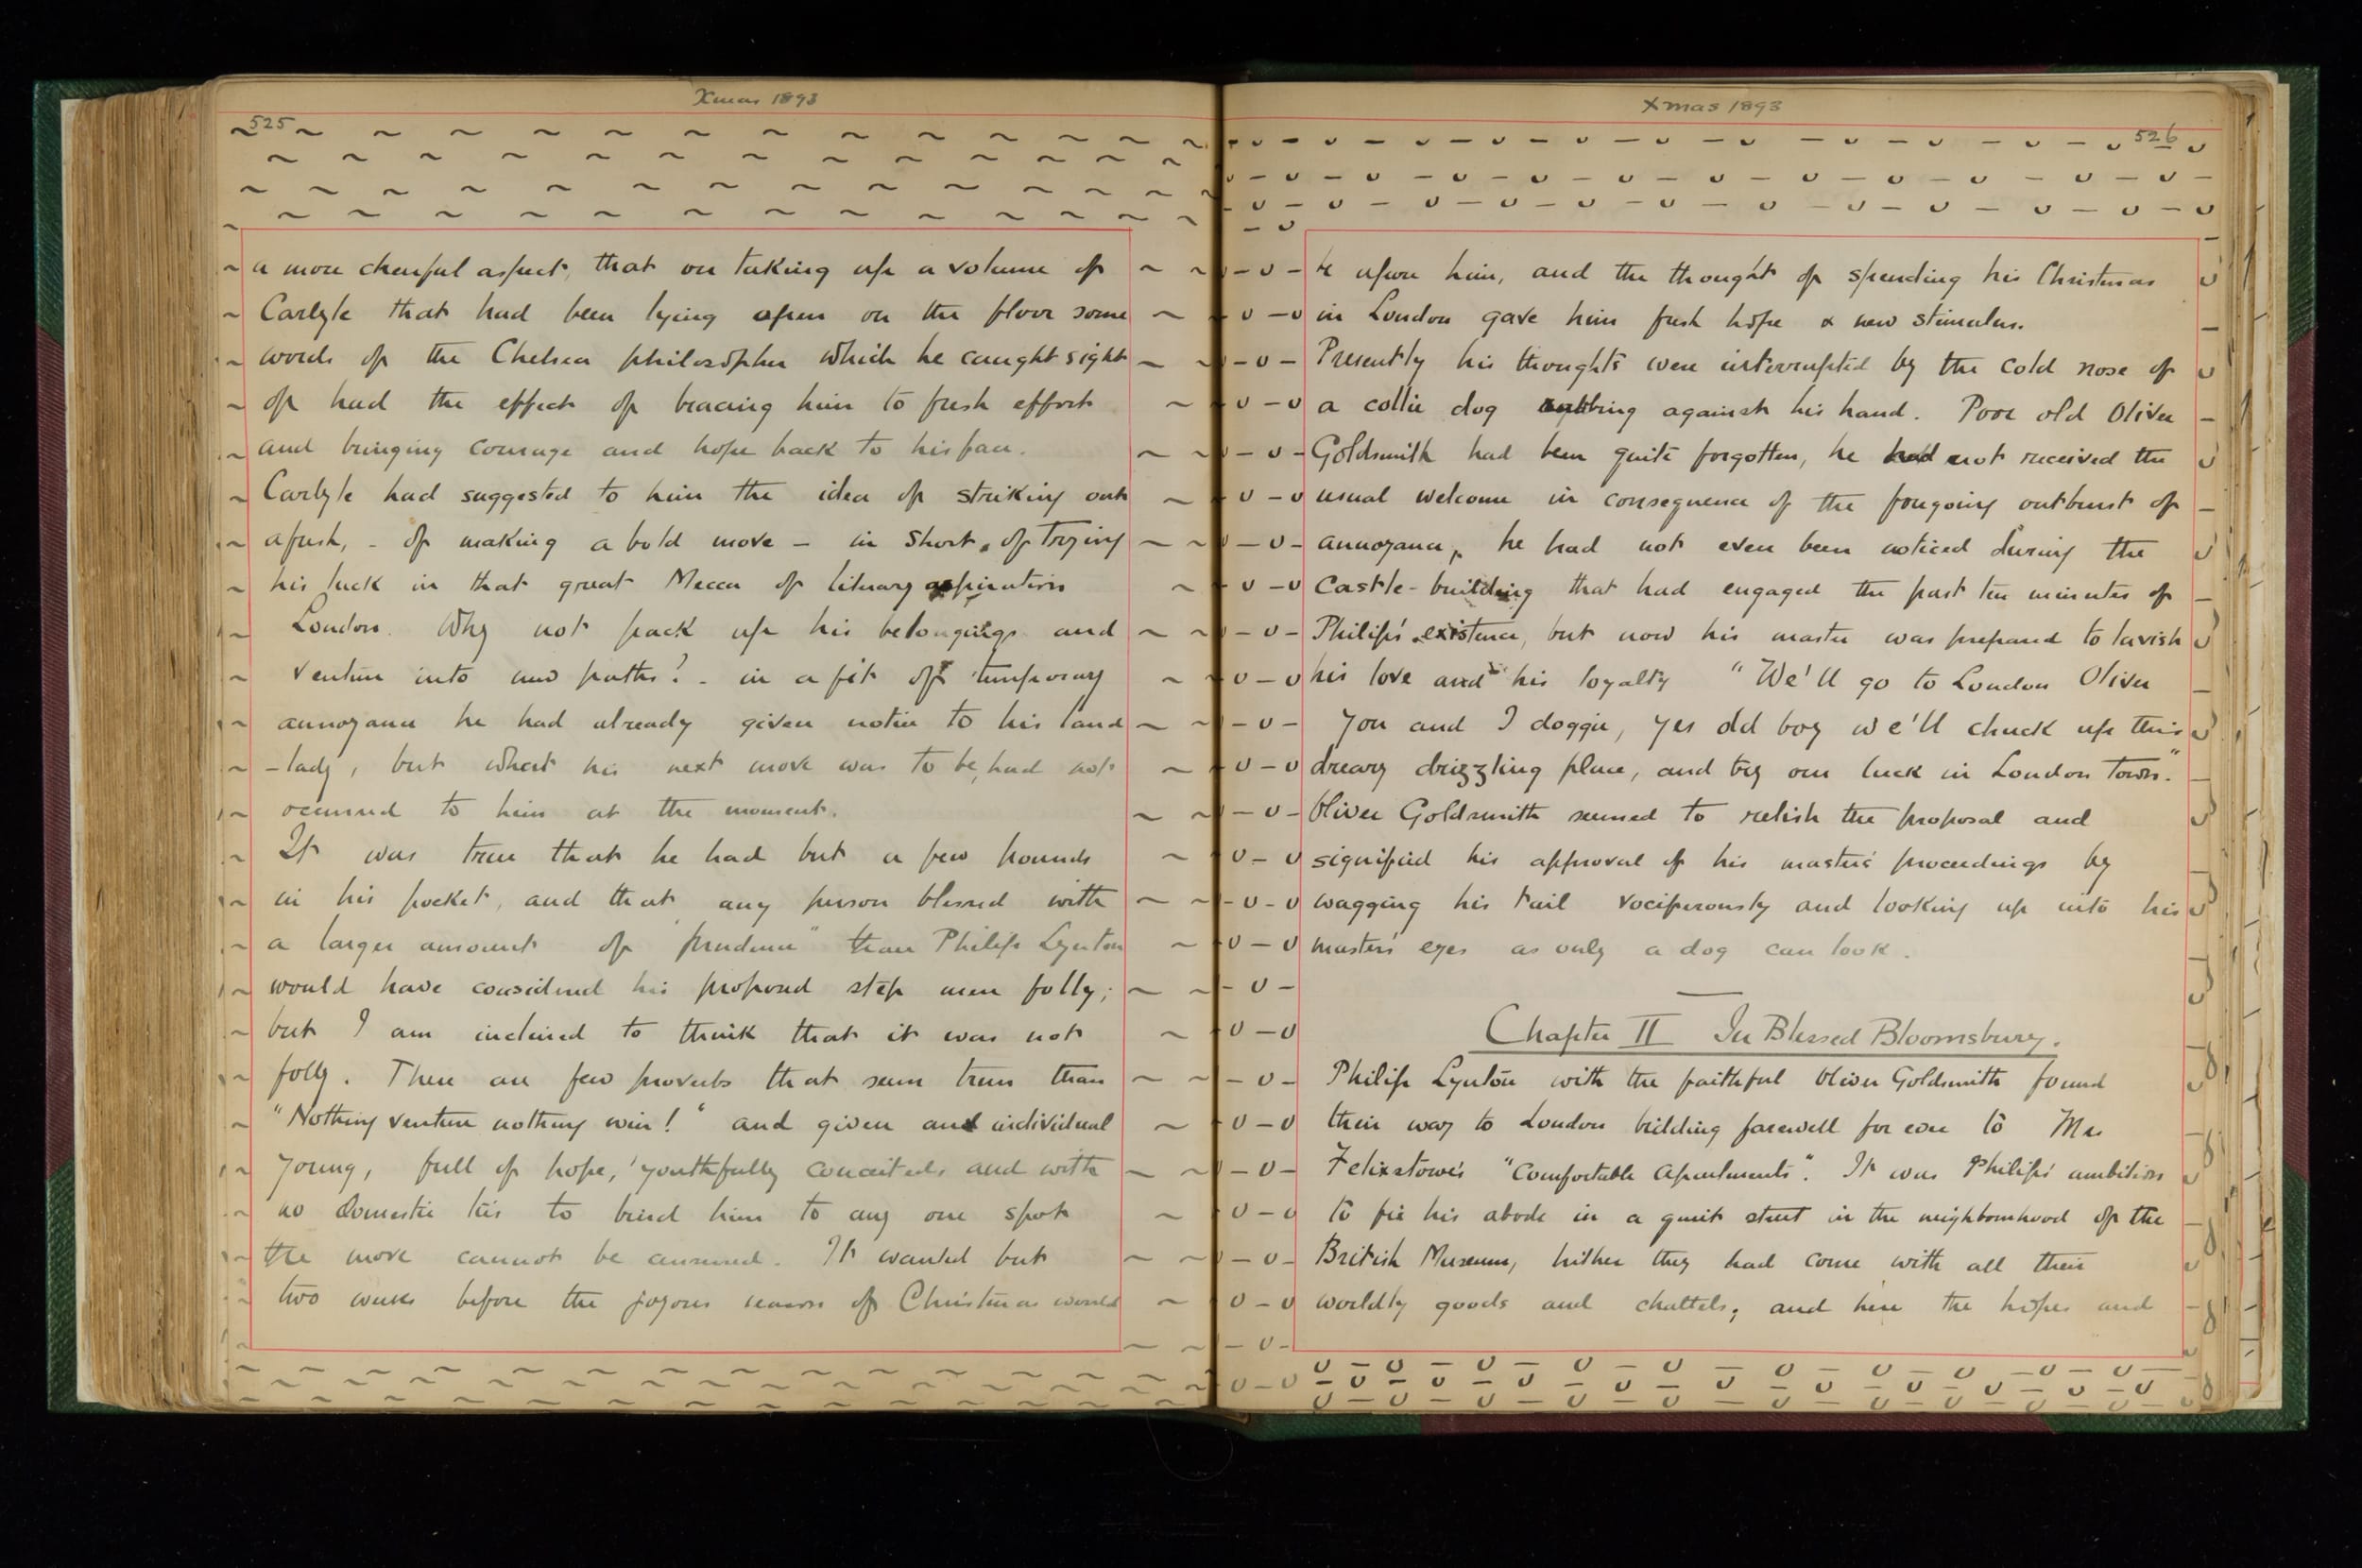 Xmas 1893
525
a more cheerful aspect, that on taking up a volume of
Carlyle that had been lying open on the floor some
words of the Chelsea philosopher which he caught sight
of had the effect of bracing him to fresh effort
and bringing courage and hope back to his face.
Carlyle had suggested to him the idea of striking out
afresh, - of making a bold move - in short, of trying
his luck in that great Mecca of literary aspiration
London. Why not pack up his belongings and
venture into new paths? - in a fit of temporary
annoyance he had already given notice to his land
-lady, but what his next move was to be, had not
occurred to him at the moment.
It was true that he had but a few pounds
in his pocket, and that any person blessed with
a larger amount of "prudence" than Philip Lynton
would have considered his proposed step mere folly;
but I am inclined to think that it was not
folly. There are few proverbs that seem truer than
"Nothing venture nothing win!" and given an individual
young, full of hope, youthfully conceited, and with
no domestic ties to bind him to any one spot
the move cannot be censured. It wanted but
two weeks before the joyous season of Christmas would
Xmas 1893
526
be upon him, and the thought of spending his Christmas
in London gave him fresh hope & new stimulus.
Presently his thoughts were interrupted by the cold nose of
a collie dog rubbing against his hand. Poor old Oliver
Goldsmith had been quite forgotten, he had not received the
usual welcome in consequence of the foregoing outburst of
annoyance, he had not even been noticed during the
Castle-building that had engaged the past ten minutes of
Philip's existence, but now his master was prepared to lavish
his love and his loyalty "We'll go to London Oliver
you and I doggie, yes old boy we'll chuck up this
dreary drizzling place, and try our luck in London Town."
Oliver Goldsmith seemed to relish the proposal and
signified his approval of his master's proceedings by
wagging his tail vociferously and looking up into his
master's eyes as only a dog can look.
Chapter II In Blessed Bloomsbury.
Philip Lynton with the faithful Oliver Goldsmith found
their way to London bidding farewell for ever to Mrs
Felixstowe's "Comfortable Apartments". It was Philip's ambition
to fix his abode in a quiet street in the neighbourhood of the
British Museum, hither they had come with all their
worldly goods and chattels; and here the hopes and